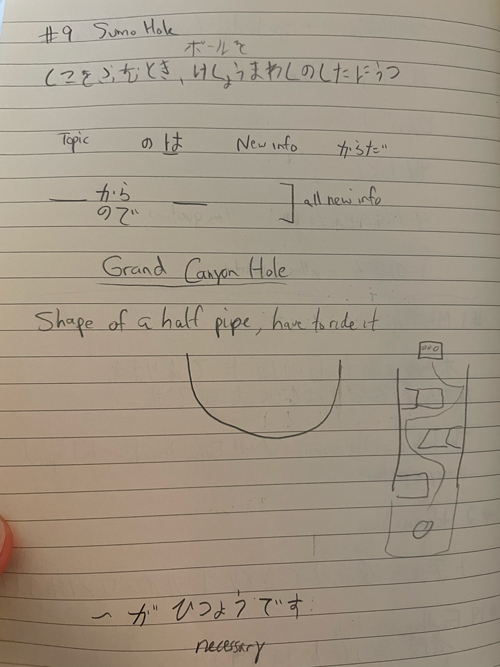 #9 Sumo Hole
ボールを
しこをふむとき、けしょうまわしのしたにうつ
Topic のは New info からだ
から
ので
all new info
Grand Canyon Hole
Shape of a half pipe, have to ride it
〜がひつようです
necessary